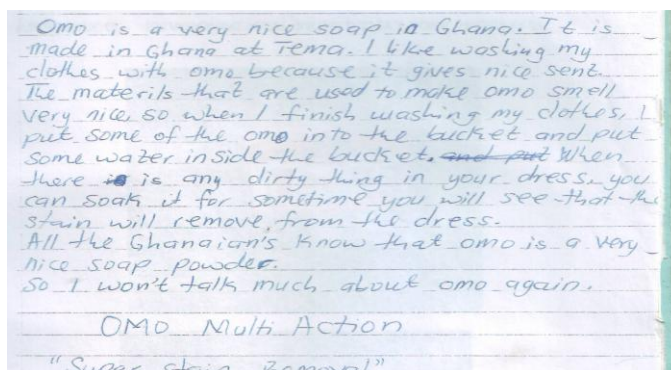 Omo is a very nice soap in Ghana. It is
made in Ghana at Tema. I like washing my
clothes with omo because it gives nice sent.
The materils that are used to make omo smell
very nice, so when I finish washing my clothes, I
put some of the omo into the bucket and put
some water inside the bucket. and put When
there is is any dirty thing in your dress, you
can soak it for sometime you will see that the
stain will remove from the dress.
All the Ghanaian's know that omo is a very
nice soap powder.
So I won't talk much about omo again.
OMO Multi Action
"Super stain Removal"